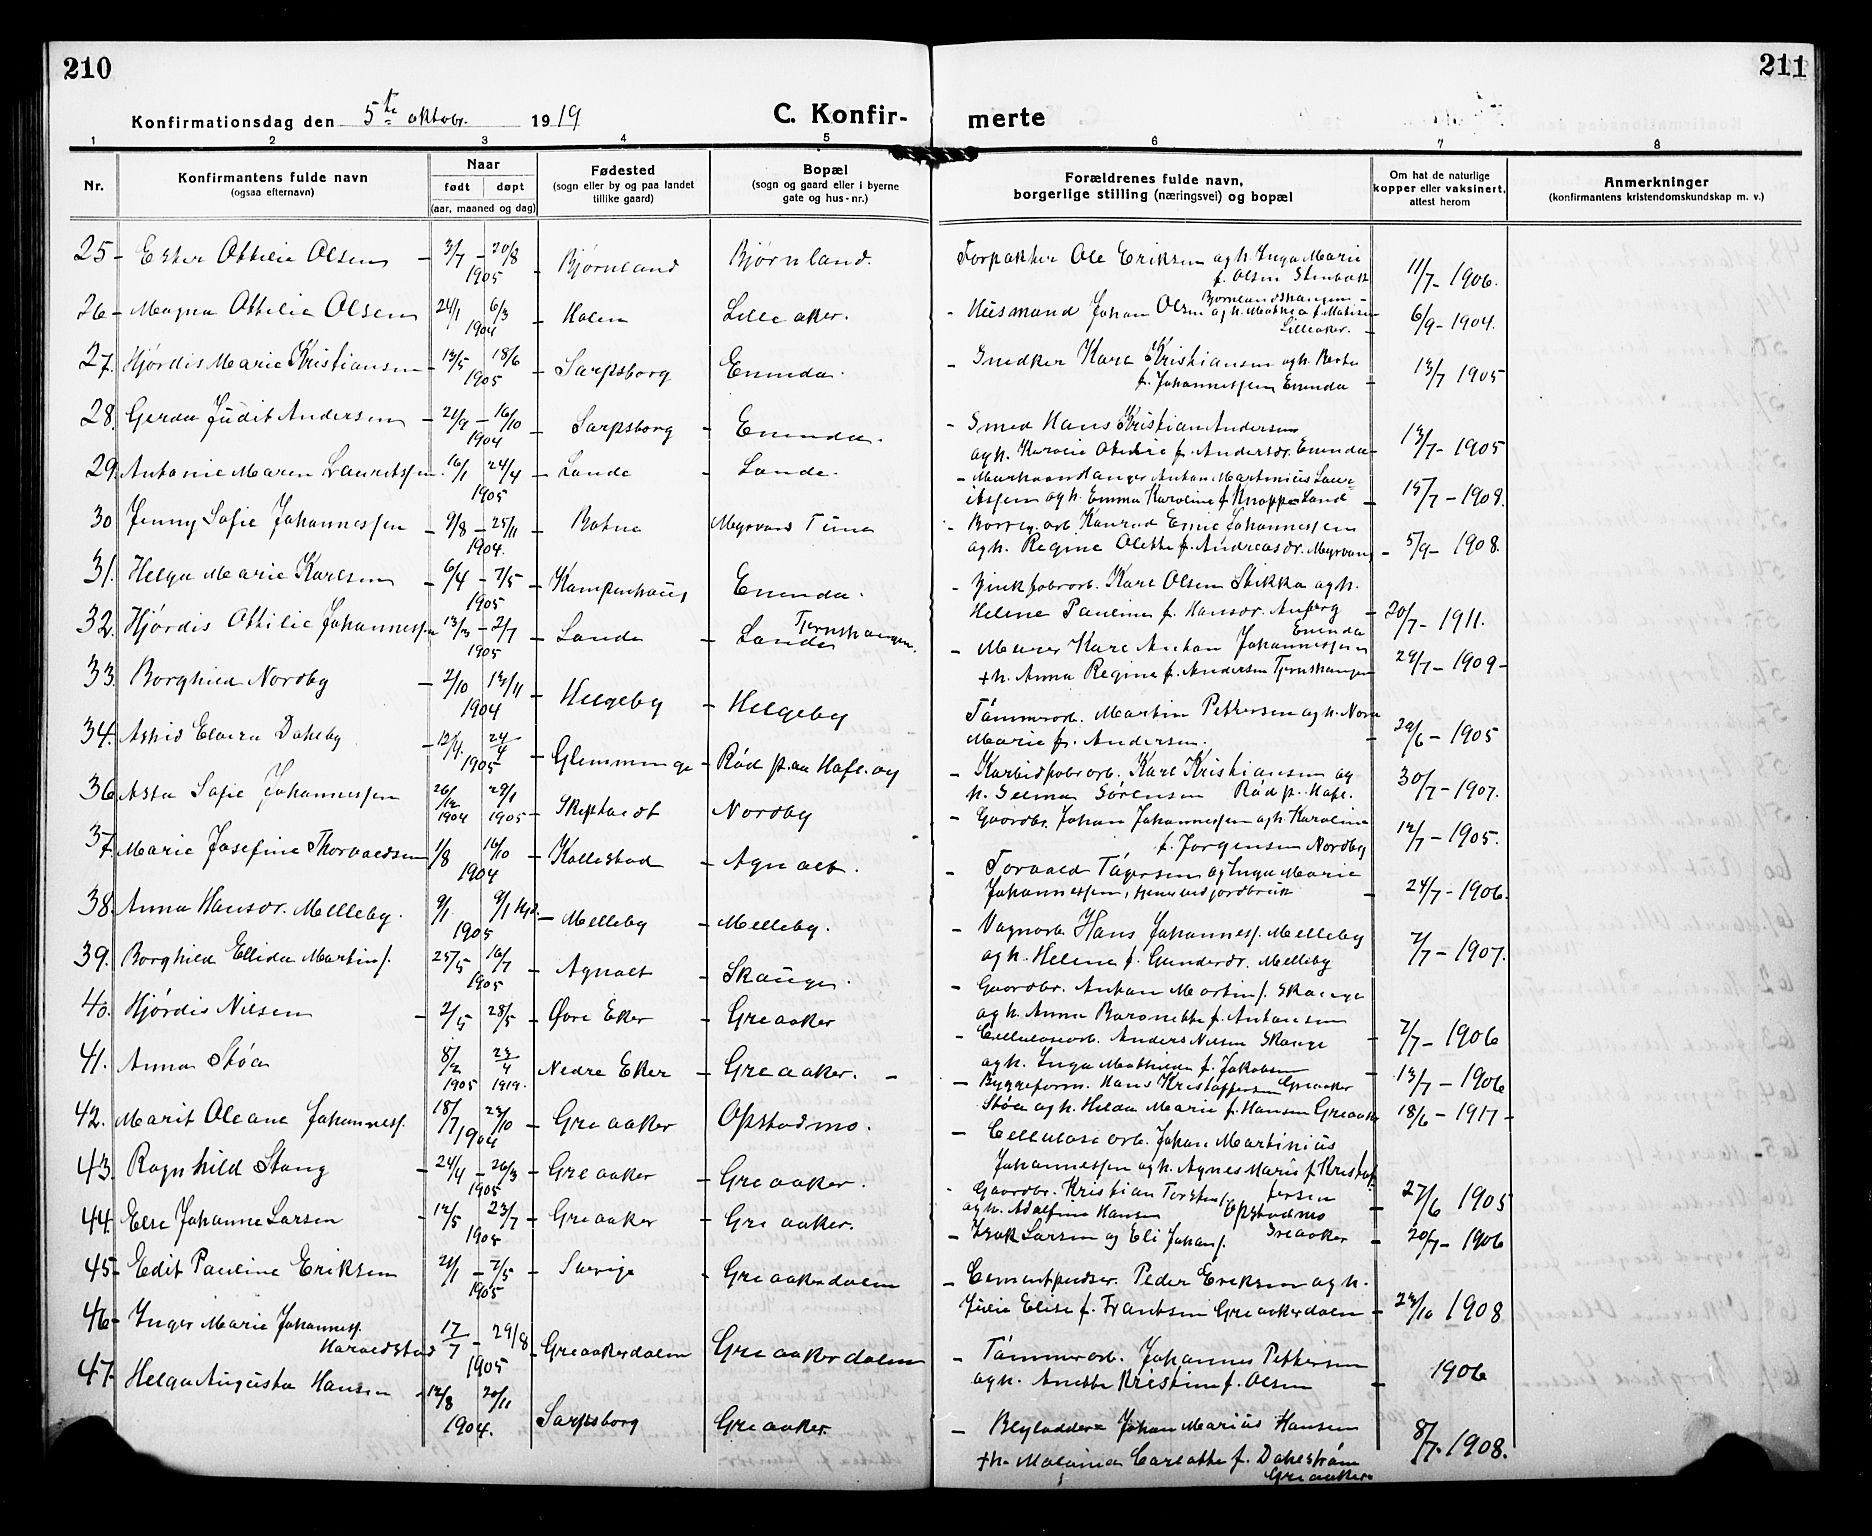 210
211
Konfirmationsdag den 5te oktobr. 1919
C. Konfir-
merte
1 2 3 4 5 6 7 8
Nr.
Konfirmantens fulde navn
(ogsaa efternavn)
Naar
født døpt
(aar, maaned og dag)
Fødested
(sogn eller by og paa landet
tillike gaard)
Bopæl
(sogn og gaard eller i byerne
gate og hus-nr.)
Forældrenes fulde navn,
borgerlige stilling (næringsvei) og bopæl
Om hat de naturlige
kopper eller vaksinert,
attest herom
Anmerkninger
(konfirmantens kristendomskundskap m. v.)
25 - Ester Ottilie Olsen - 3/7 - 20/8 1905 - Bjørnland Bjørnland. Forpakter Ole Eriksen og h. Inga Marie
f. Olsen Stenbæk 11/7 - 1906.
Bjørnlandshaugen -
26 - Magna Ottilie Olsen 24/1 6/3 1904 - Holen Lilleaker. - Husmand Johan Olsen og h. Mathea f. Mathisen
Lilleaker. - 6/9 - 1904.
27. Hjørdis Marie Kristiansen - 13/5 18/6 1905 - Sarpsborg Enenda. - Snedker Karl Kristiansen og h. Berte
f. Johannessen Enenda - 13/7 1905
28. Gerda Judit Andersen - 21/9 - 16/10 1904 - Sarpsborg - Enenda. - Smed Hans Kristian Andersen
og h. Karoline f. Andersdr. Enenda - 13/7 - 1905
29. Antonie Maren Lauritssen. 16/1 24/4 1905 - Lande - Lande. - Anton Martinius Laur-
itssen og h. Emma Karoline f. Knoppe Lande - 15/7 - 1908.
30 Jenny Sofie Johannessen - 9/8 - 25/11 1904. - Botne Myrvang Tune - Borreg. arb. Konrad Emil Johannessen
og h. Regine Olette f. Andreasdr. Myrvang - 5/9 - 1908.
31. Helga Marie Karlsen - 6/4 - 7/5 1905 - Kampenhaug Enenda. - Zinkfabrarb. Karl Olsen Stikka og h.
Helene Pauline f. Hansdr. Enenda - 20/7 - 1911.
32. Hjørdis Ottilie Johannessen 13/3 - 2/7 1905 - Lande - Lande Tjernshaugen. - Murer Karl Anton Johannessen
+ h. Anna Regine f. Andersen Tjernshaugen 24/7 - 1909 -
33. Borghild Nordby - 2/10 13/11 1904 - Helgeby - Helgeby Tømmerarb. Martin Pettersen og h. Nora
Marie f. Andersen. - 29/6 - 1905
34. Astrid Elvira Dahlby - 12/4. 24/4 1905 - Glemminge - Rød p. aa Hafl. ag - Karbidfabrarb. Karl Kristiansen og
h. Selma Sørensen Rød p. Hafl. 30/7 - 1907.
36 Asta Sofie Johannessen 26/12 1904 29/1 1905 - Skiptvedt Nordby - Gaardbr. Johan Johannessen og h. Karoline
f. Jørgensen Nordby 12/7 - 1905.
37. Marie Josefine Thorvaldsen 1/8 16/10 1904 - Kallestad - Agnalt. - Torvald Tagersen og Inga Marie
Johannessen, - 24/7 - 1906.
38. Anna Hansdr. Melleby. 9/1 9/1 Hjd. 1905 - Melleby - Melleby. - Vognarb. Hans Johannesf. Melleby
og h. Helene f. Gundersdr. Melleby 7/7 - 1907.
39. Borghild Ellida Martinf. 25/5 16/7 1905 - Agnalt - Skauge. - Gaardbr. Anton Martinf. Skauge
og h. Anna Baronette f. Antonsen
40. Hjørdis Nilsen - 2/5 28/5 - Øvre Eker - Greaaker - Cellulosearb. Anders Nilsen Skauge
og h. Inga Mathilde f. Jakobsen 7/7 - 1906
41. Anna Støa 8/2 1905 23/4 1919. Nedre Eker - Greaaker. - - Byggeform. Hans Kristoffersen Greaaker
Støa og h. Hilda Marie f. Hansen Greaaker 13/7 - 1906
42. Marit Oleane Johannesf. 18/7 23/10 1904 - Greaaker Opstadmo. - Cellulosearb. Johan Martinius
Johannessen og h. Agnes Marie f. Kristof-
fersen Opstadmo 18/6 - 1917 -
43. Ragnhild Stang - 24/4 - 26/3 1905 - Greaaker - Greaaker. - Gaardbr. Kristian Torstens.
og h. Adolfine Hansen Greaaker - 27/6 1905
44. Else Johanne Larsen - 12/5 23/7 1905 - Greaaker - Greaaker. - Isak Larsen og Eli Johanf. - 20/7 - 1906
45 - Edit Pauline Eriksen 21/1 - 7/5 1905 - Sverige - Greaakerdalen - Cementpudser. Peder Eriksen og h.
Julie Elise f. Frantsen Greaakerdalen - 23/10 1908
46 - Inger Marie Johannesf.
Haraldstad 17/7 - 29/8 1905 - Greaakerdalen Greaakerdalen - Tømmerarb. Johannes Pettersen
og h. Anette Kristine f. Olsen - 1906
47. Helga Augusta Hansen - 12/8 20/11 1904. Sarpsborg Greaaker - Blyloddere Johan Marius Hansen
+ h. Malania Carlotte f. Dahlstrøm
Greaaker 8/7. 1908.